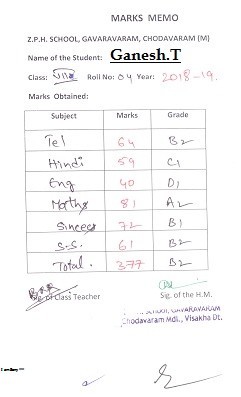 MARKS MEMO
Z.P.H. SCHOOL, GAVARAVARAM, CHODAVARAM (M)
Name of the Student: Ganesh.T
Class: Roll No: 04 Year: 2018-19.
Marks Obtained:
Subject Marks Grade
Tel 64 B2
Hindi 59 C1
Eng 40 D1
Maths 81 A2
Sincees 72 B1
S.S. 61 B2
Total. 377 B2
Sig. of Class Teacher Sig. of the H.M.
SCHOOL, GAVARAVARAM
Chodavaram Mdl., Visakha Dt.